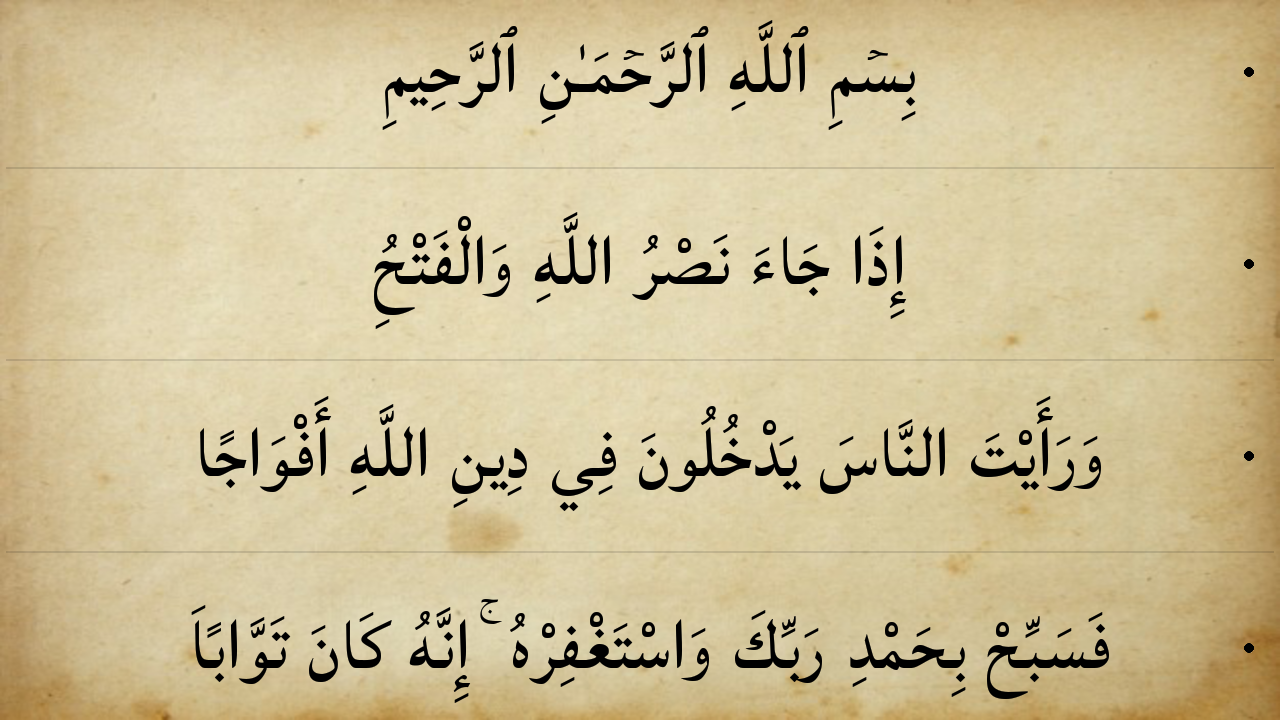 بِسۡمِ ٱللَّهِ ٱلرَّحۡمَـٰنِ ٱلرَّحِيمِ
إِذَا جَاءَ نَصْرُ اللَّهِ وَالْفَتْحُِ
وَرَأَيْتَ النَّاسَ يَدْخُلُونَ فِي دِينِ اللَّهِ أَفْوَاجًا
فَسَبِّحْ بِحَمْدِ رَبِّكَ وَاسْتَغْفِرْهُ ۚ إِنَّهُ كَانَ تَوَّابًاَ